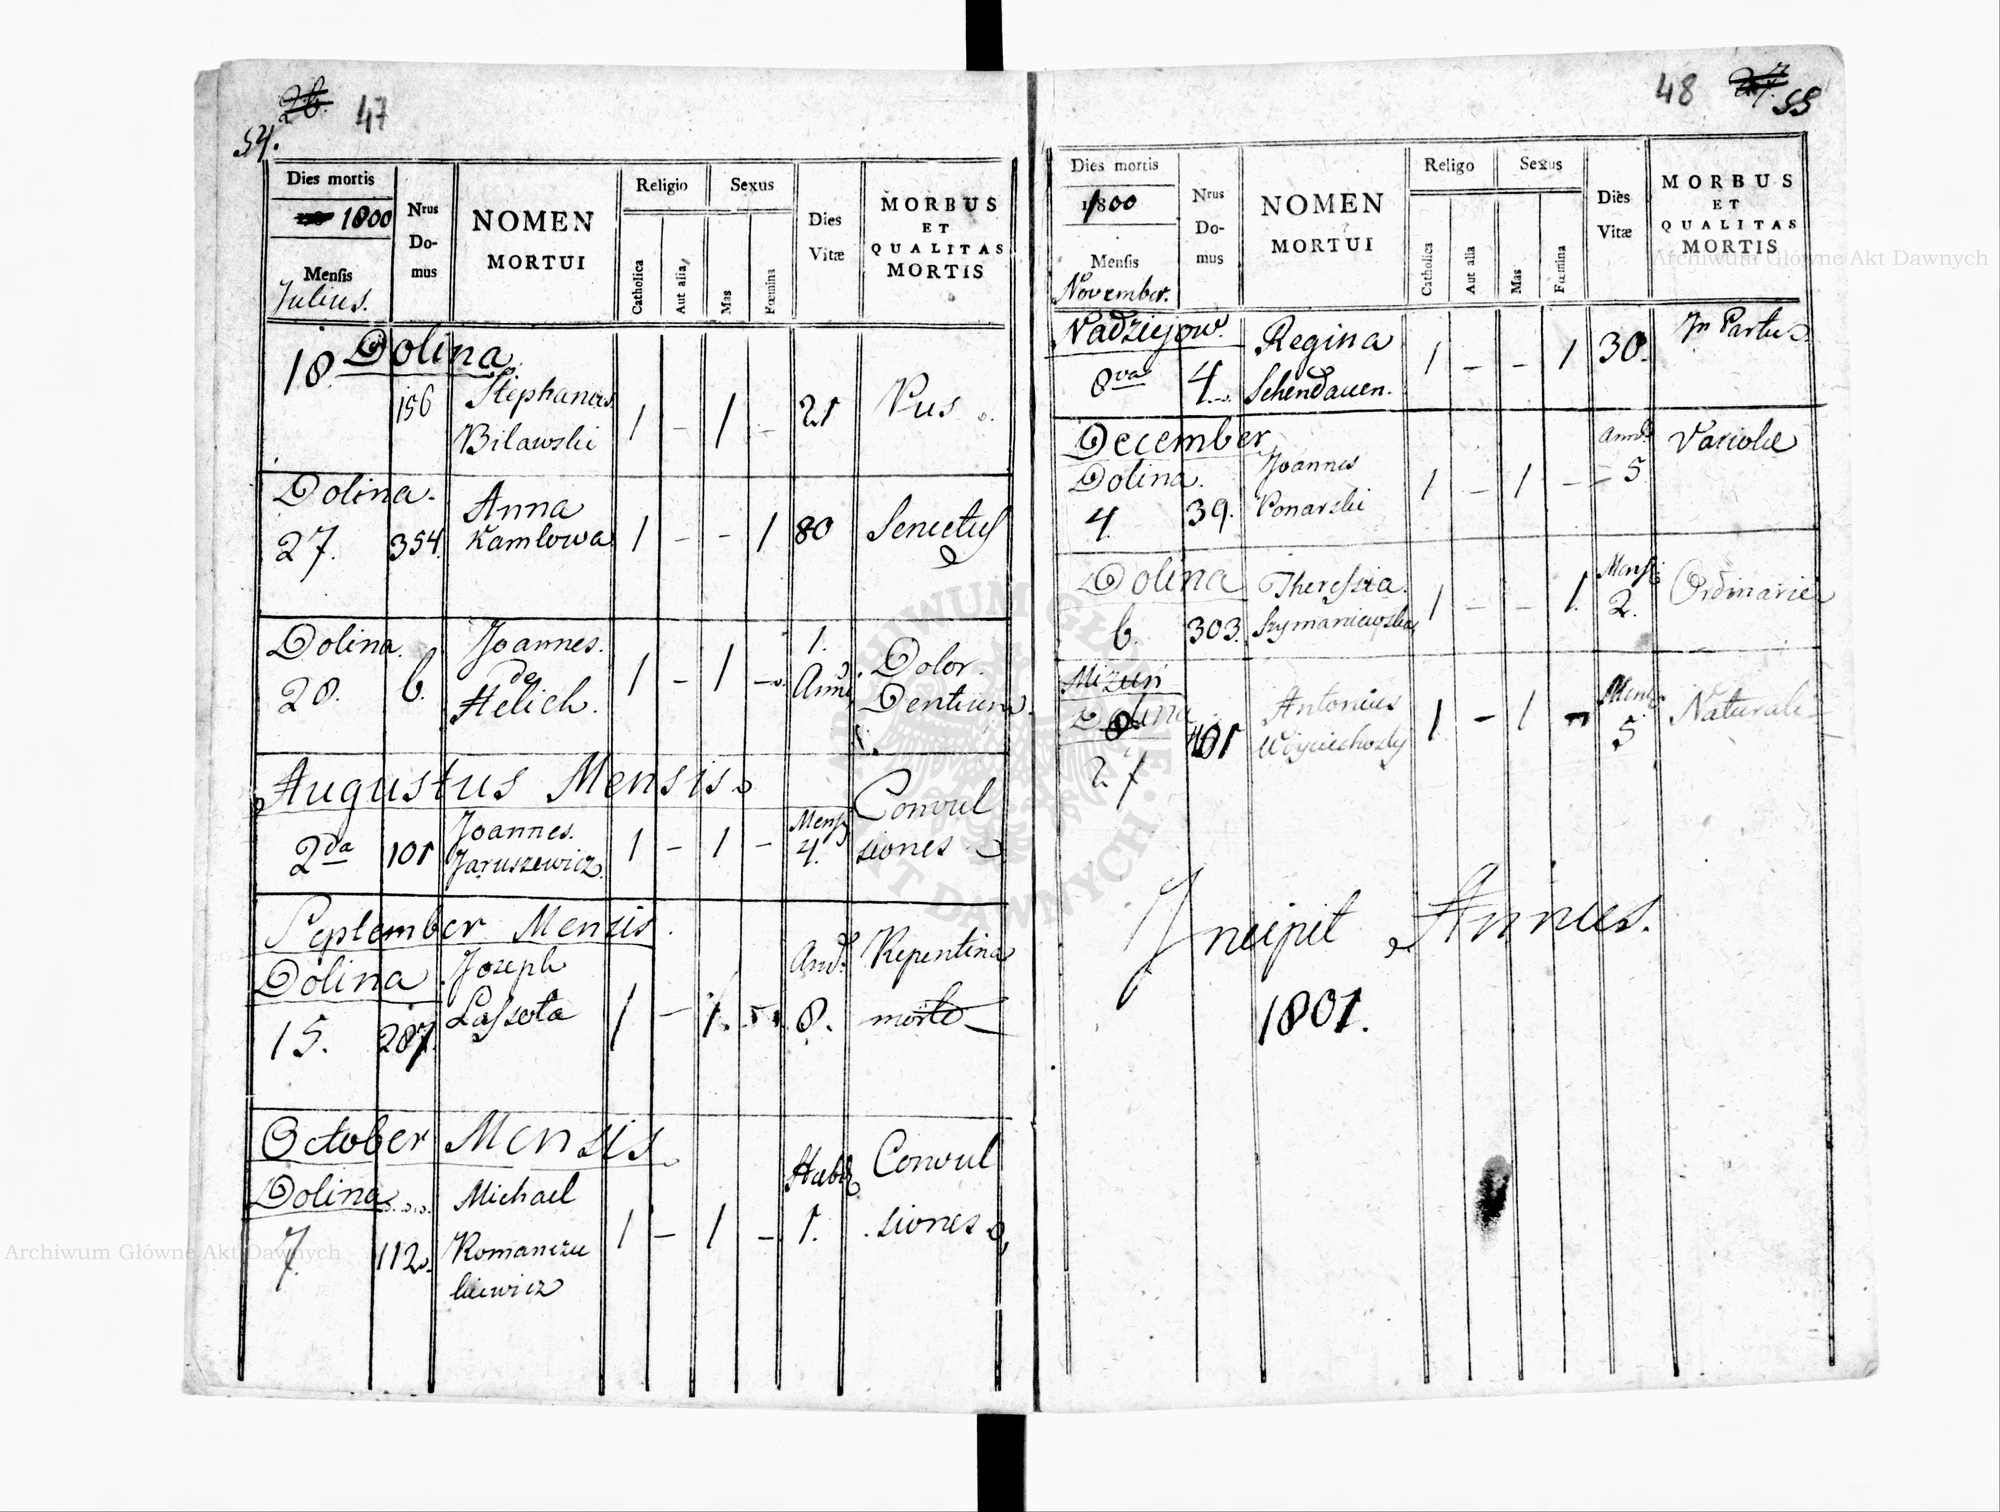 26.
47
54.
Dies mortis
1800
Mensis
Julius.
Nrus
Do-
mus
NOMEN
MORTUI
Religio
Catholica
Aut alia
Sexus
Mas
Fœmina
Dies
Vitæ
MORBUS
ET
QUALITAS
MORTIS
18 Dolina
156 Stephanus
Bilawski 1 - 1 - 21 Pus
Dolina.
27. 354. Anna
Kamlowa 1 - - 1 80 Senectus
Dolina.
28. 6. Joannes.
de
Helich. 1 - 1 - 1.
Anni Dolor
Dentium
Augustus Mensis
2da 101 Joannes.
Jaruszewicz. 1 - 1 - Mens
4. Convul
siones
September Mensis
Dolina
15. 287. Joseph
Lassota 1 - 1. - Ann.
8. Repentina
morte
October Mensis
Dolina
7. 112. Michael
Romanczu
kiewicz 1 - 1 - Hebd
1. Convul
siones
48
27.
55
Dies mortis
1800
Mensis
November.
Nrus
Do-
mus
NOMEN
MORTUI
Religo
Catholica
Aut alia
Sexus
Mas
Fœmina
Dies
Vitæ
MORBUS
ET
QUALITAS
MORTIS
Nadziejow.
8va 4. Regina
Schendauen. 1 - - 1 30. In Partu
December
Dolina.
4. 39. Joannes
Ponarski 1 - 1 - Ann.
5 Variolæ
Dolina
6. 303. Theressia.
Szymaniewska 1 - - 1. Mens
2. Ordinaria
Mizuń
Dolina
27 101 Antonius
Woyciechosky 1 - 1 - Mens
5 Naturali
Incipit Annus.
1801.
Archiwum Główne Akt Dawnych
Archiwum Główne Akt Dawnych
ARCHIWUM GŁÓWNE AKT DAWNYCH